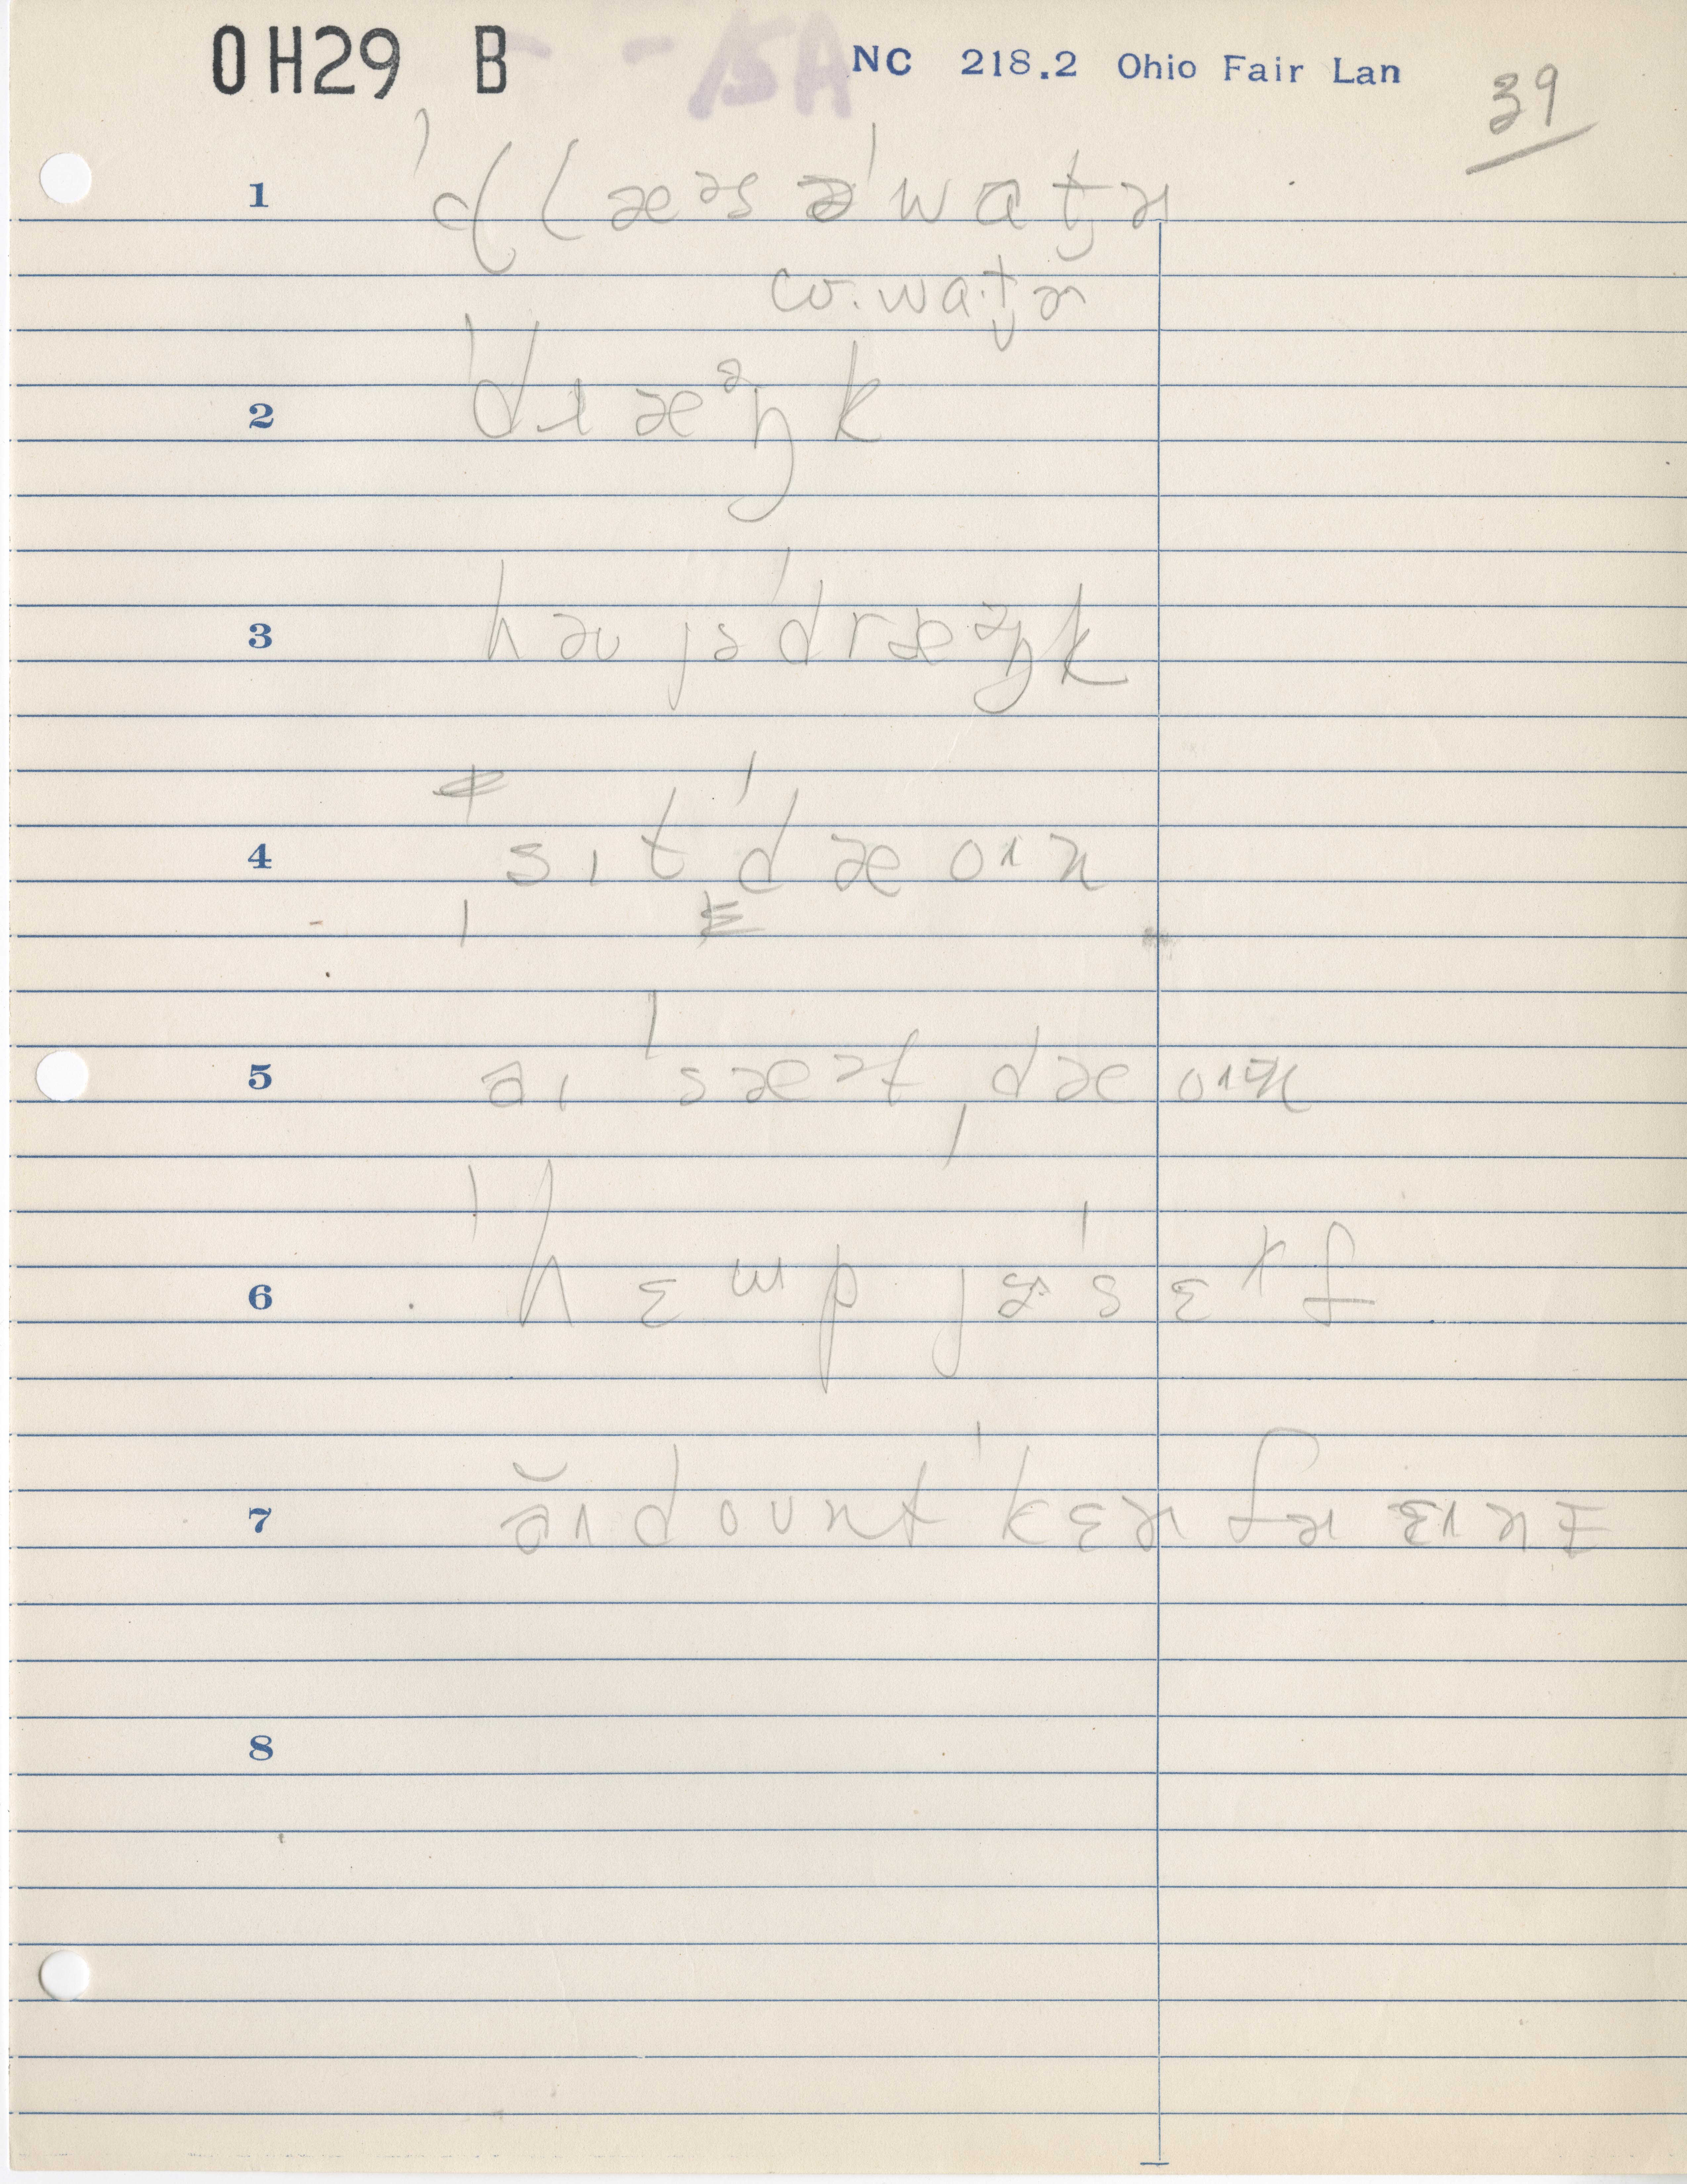 OH29 B -15A NC 218.2 Ohio Fair Lan
39
1 ˈɡlæᵊs əˈwat̬ɚ
watɚ
2 ˈdɹæᵊŋk
3 həʊ jəˈdræᵊŋk
4 sɪtˈdæoᶺn
5 aɪ ˈsæᵊt ˌdæoᶺn
6 ˈhɛɯp jɚˈsɛɫf
7 ə̆ɪ dount ˈkɛɚ fɚ ɛɪnɪ
8